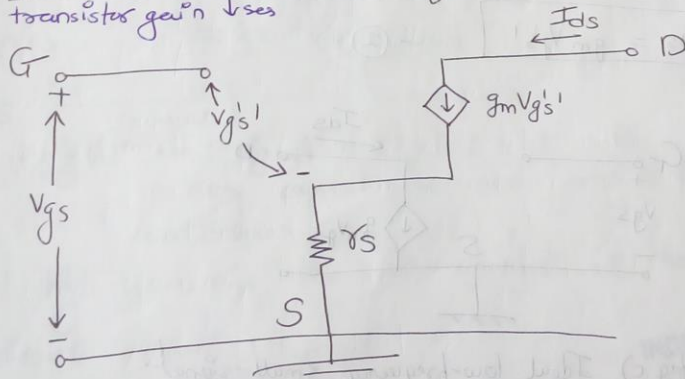 transistor gain ↓ses
Ids
G
D
+
Vg's'
gmVg's'
-
Vgs
rs
S
-